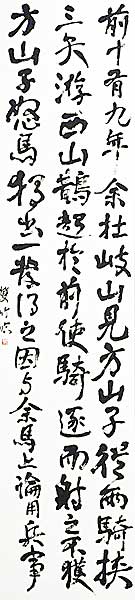 前十有九年余在岐山見方山子從兩騎挾
二矢游西山鵲起於前使騎逐而射之不獲
方山子怒馬獨出一發得之因與余馬上論用兵事